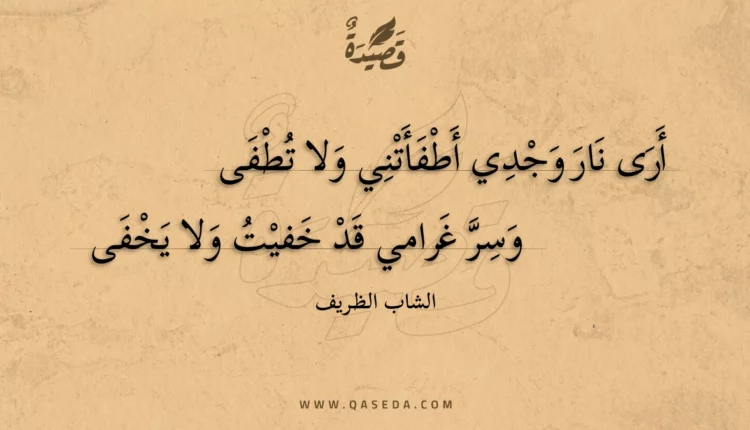 قَصِيْدَةٌ
أَرَى نَارَ وَجْدِي أَطْفَأَتْنِي وَلا تُطْفَى
وَسِرَّ غَرامي قَدْ خَفيْتُ وَلا يَخْفَى
الشاب الظريف
WWW.QASEDA.COM